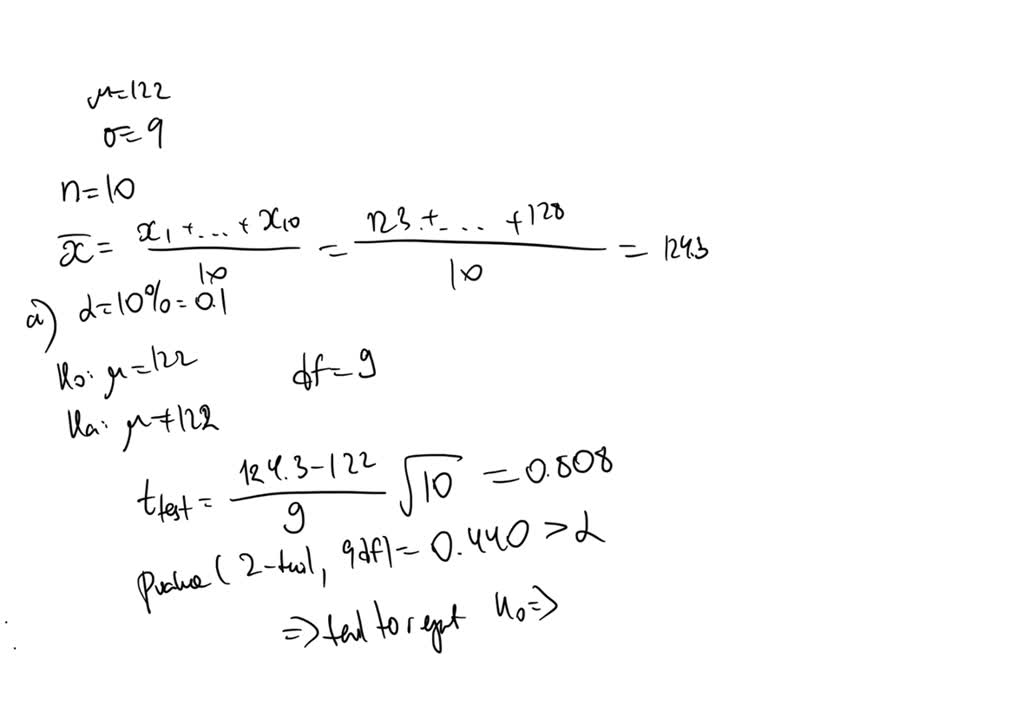 μ=122
σ=9
n=10
x̄ = (x₁ + ... + x₁₀)/10 = (123 + ... + 128)/10 = 124.3
a) α=10%=0.1
H₀: μ=122 df=9
Ha: μ≠122
t_test = (124.3-122)/9 √10 = 0.808
pvalue (2-tail, 9df) = 0.440 > α
⇒ fail to reject H₀ ⇒